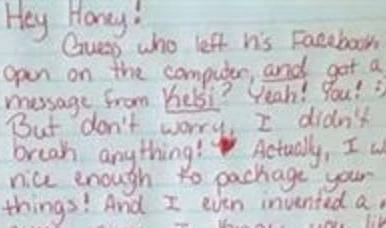 Hey Honey!
Guess who left his Facebook
open on the computer, and got a
message from Kelsi? Yeah! You! :)
But don't worry, I didn't
break anything! ♥ Actually, I
nice enough to package your
things! And I even invented a